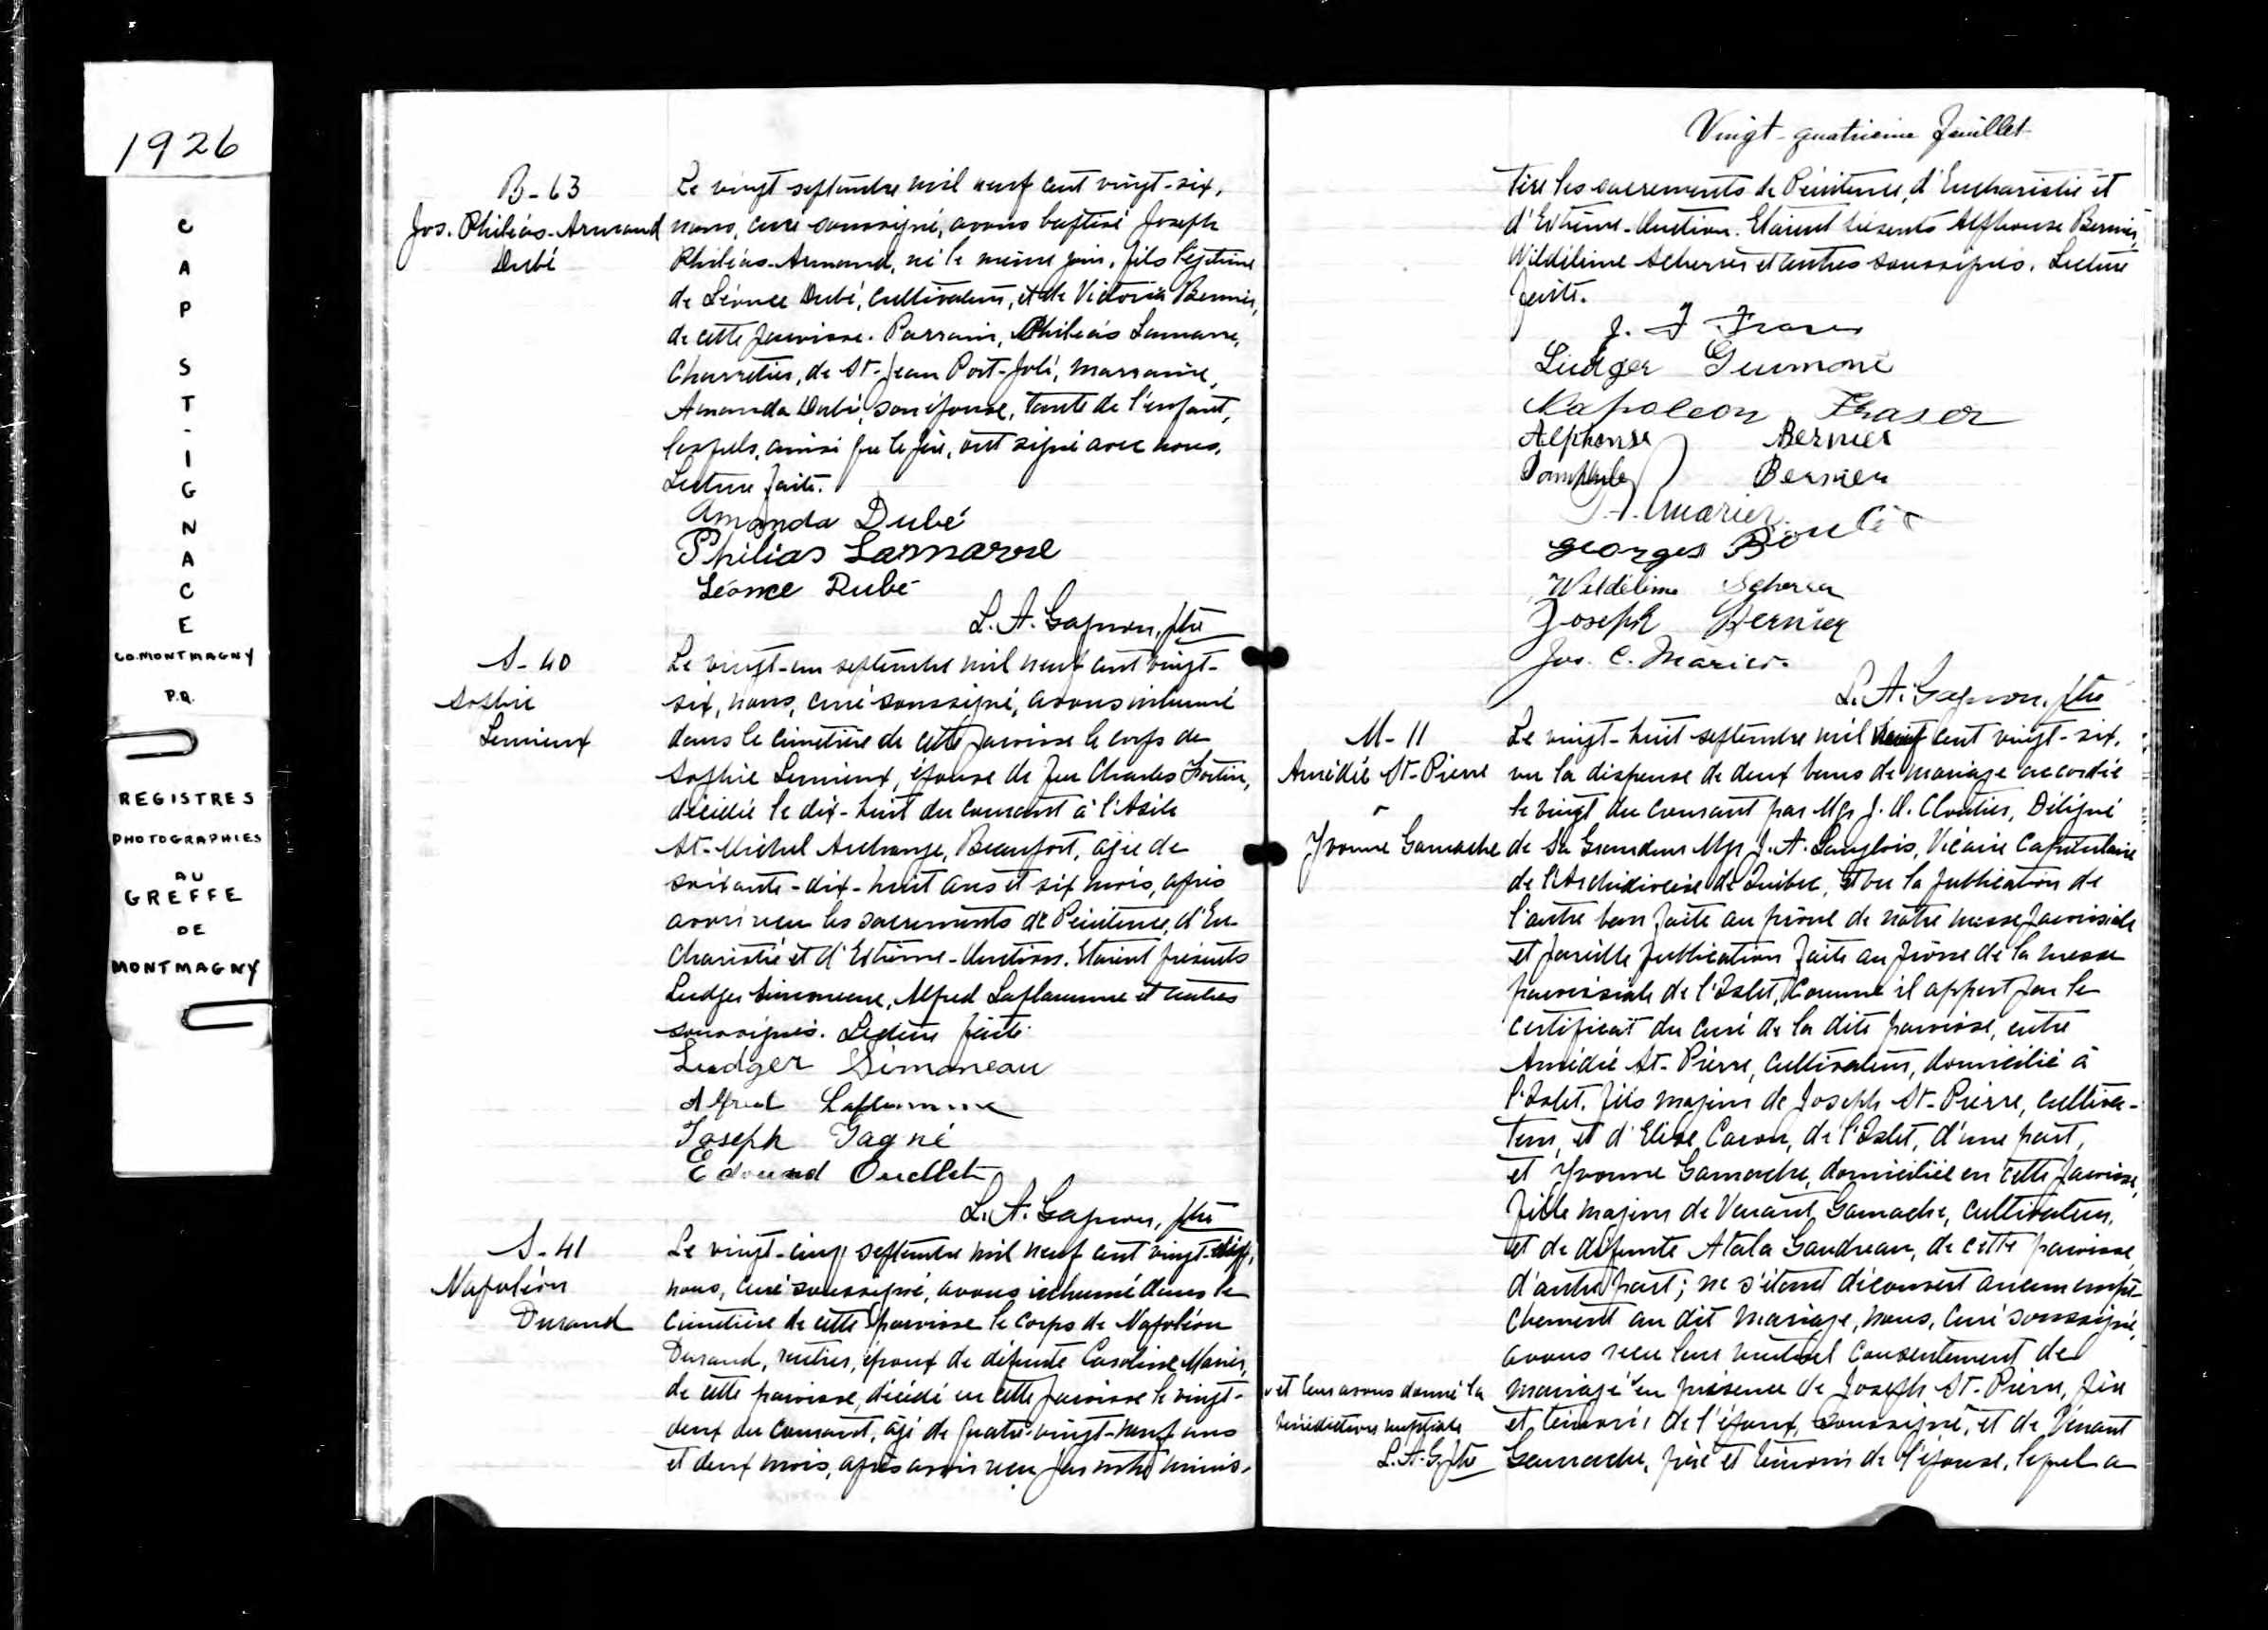 1926
CAP ST-IGNACE
CO. MONTMAGNY
P.Q.
REGISTRES
PHOTOGRAPHIES
AU
GREFFE
DE
MONTMAGNY
B-63
Jos. Philéas-Armand
Dubé
Le vingt septembre mil neuf cent vingt-six,
nous, curé soussigné, avons baptisé Joseph
Philéas-Armand, né le même jour, fils légitime
de Léonce Dubé, cultivateur, et de Victoria Bernier,
de cette paroisse. Parrain, Philéas Lamarre,
charretier, de St-Jean Port-Joli, marraine,
Amanda Dubé, son épouse, tante de l'enfant,
lesquels, ainsi que le père, ont signé avec nous.
Lecture faite.
Amanda Dubé
Philias Lamarre
Léonce Dubé
L. A. Gagnon, ptre
S-40
Sophie
Lemieux
Le vingt-un septembre mil neuf cent vingt-
six, nous, curé soussigné, avons inhumé
dans le cimetière de cette paroisse le corps de
Sophie Lemieux, épouse de feu Charles Fortin,
décédée le dix-huit du courant à l'Asile
St-Michel Archange, Beauport, âgée de
soixante-dix-huit ans et six mois, après
avoir reçu les sacrements de Pénitence, d'Eu-
charistie et d'Extrême-Onction. Etaient présents
Ludger Simoneau, Alfred Laflamme et autres
soussignés. Lecture faite.
Ludger Simoneau
Alfred Laflamme
Joseph Gagné
Edouard Ouellet
L. A. Gagnon, ptre
S-41
Napoléon
Durand
Le vingt-cinq septembre mil neuf cent vingt-six,
nous, curé soussigné, avons inhumé dans le
cimetière de cette paroisse le corps de Napoléon
Durand, rentier, époux de défunte Caroline Marier,
de cette paroisse, décédé en cette paroisse le vingt-
deux du courant, âgé de quatre-vingt-neuf ans
et deux mois, après avoir reçu par notre minis-
Vingt-quatrième Feuillet
tère les sacrements de Pénitence, d'Eucharistie et
d'Extrême-Onction. Etaient présents Alphonse Bernier,
Wildélime Scherrer et autres soussignés. Lecture
faite.
J. F Fraser
Ludger Guimond
Napoleon Fraser
Alphonse Bernier
Bernier
Marier
Georges Boulet
Wildélime Scherrer
Joseph Bernier
Jos. C. Marier.
L. A. Gagnon, ptre
M-11
Amédée St-Pierre
&
Yvonne Gamache
Le vingt-huit septembre mil neuf cent vingt-six,
vu la dispense de deux bans de mariage accordée
le vingt du courant par Mgr J. Cloutier, Délégué
de Sa Grandeur Mgr J. A. Langlois, Vicaire Capitulaire
de l'Archidiocèse de Québec, et vu la publication de
l'autre ban faite au prône de notre messe paroissiale
et pareille publication faite au prône de la messe
paroissiale de l'Islet, comme il appert par le
certificat du curé de la dite paroisse, entre
Amédée St-Pierre, cultivateur, domicilié à
l'Islet, fils majeur de Joseph St-Pierre, cultiva-
teur, et d'Elise Caron, de l'Islet, d'une part,
et Yvonne Gamache, domiciliée en cette paroisse,
fille majeure de Venant Gamache, cultivateur,
et de défunte Atala Gaudreau, de cette paroisse,
d'autre part; ne s'étant découvert aucun empê-
chement au dit mariage, nous, curé soussigné,
avons reçu leur mutuel consentement de
mariage en présence de Joseph St-Pierre, père
et témoin de l'époux, soussigné, et de Venant
Gamache, père et témoin de l'épouse, lequel a
v et leur avons donné la
bénédiction nuptiale
L.A.G. ptre